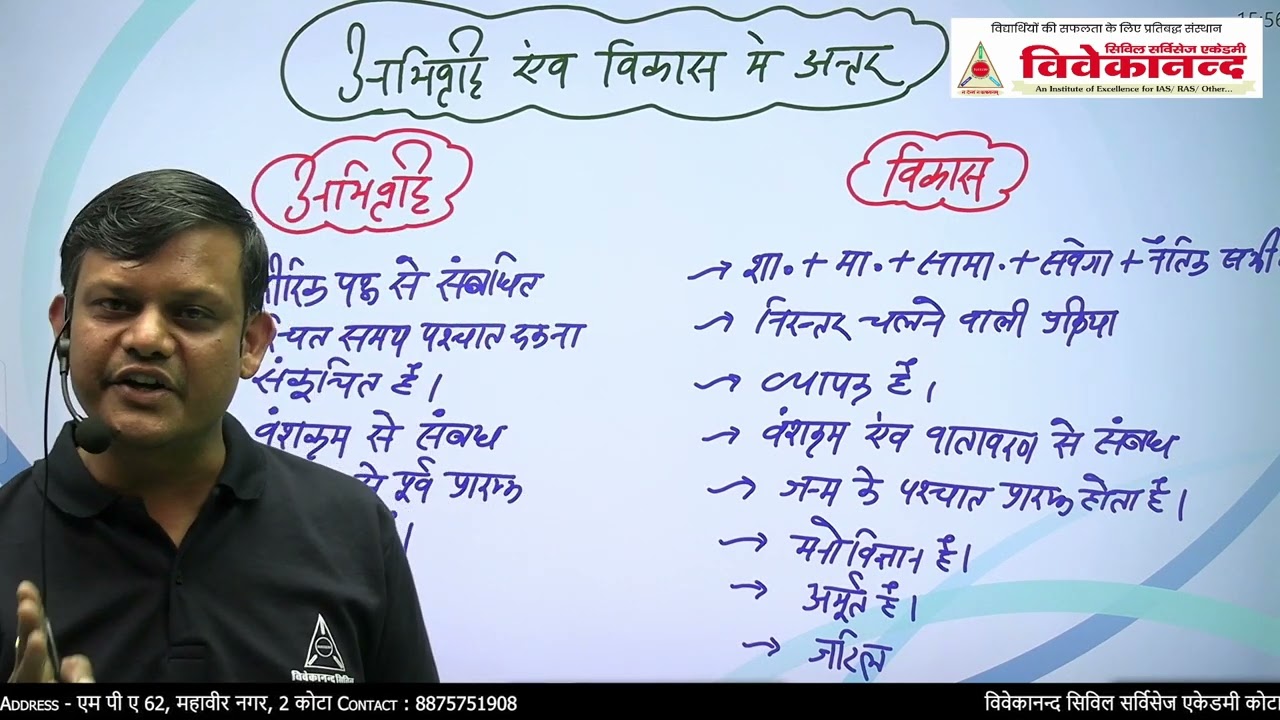 अभिवृद्धि एंव विकास मे अन्तर
15:56
विद्यार्थियों की सफलता के लिए प्रतिबद्ध संस्थान
सिविल सर्विसेज एकेडमी
विवेकानन्द
An Institute of Excellence for IAS/ RAS/ Other...
अभिवृद्धि
रीरिक पक्ष से संबंधित
श्चित समय पश्चात रूकना
संकूचित है।
वंशक्रम से संबध
से पूर्व प्रारम्भ
विकास
→ शा॰ + मा॰ + सामा॰ + संवेगा + नैतिक सभी
→ निरन्तर चलने वाली प्रक्रिया
→ व्यापक है।
→ वंशक्रम एंव वातावरण से संबध
→ जन्म के पश्चात प्रारम्भ होता है।
→ मनोविज्ञान है।
→ अर्मूत है।
→ जटिल
विवेकानन्द सिविल
ADDRESS - एम पी ए 62, महावीर नगर, 2 कोटा CONTACT : 8875751908
विवेकानन्द सिविल सर्विसेज एकेडमी कोटा